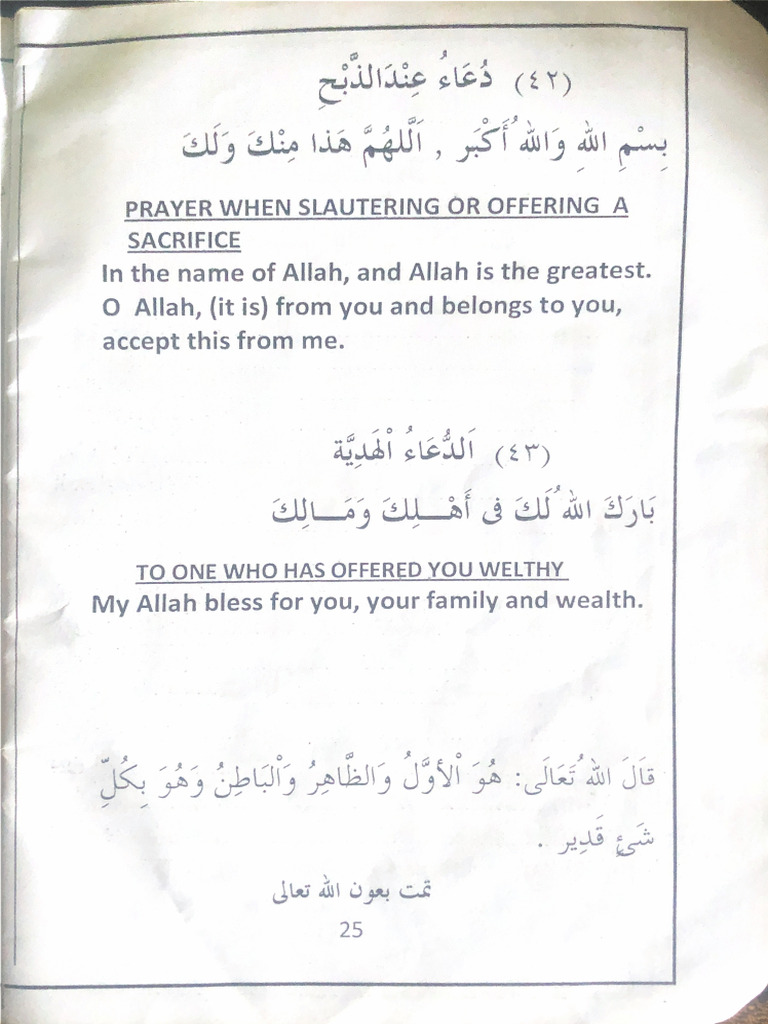 (٤٢) دُعَاءُ عِنْدَالذَّبْحِ
بِسْمِ اللهِ وَاللهُ أَكْبَر , اَللهُمَّ هَذا مِنْكَ وَلَكَ
PRAYER WHEN SLAUTERING OR OFFERING A
SACRIFICE
In the name of Allah, and Allah is the greatest.
O Allah, (it is) from you and belongs to you,
accept this from me.
(٤٣) اَلدُّعَاءُ الْهَدِيَّة
بَارَكَ اللهُ لَكَ فى أَهْـــلِكَ وَمَـــالِكَ
TO ONE WHO HAS OFFERED YOU WELTHY
My Allah bless for you, your family and wealth.
قاَلَ اللهُ تَعَالَى: هُوَ الْأوَّلُ وَالظَّاهِرُ وَالْبَاطِنُ وَهُوَ بِكُلِّ
شَئٍ قَدِير .
تمت بعون الله تعالى
25